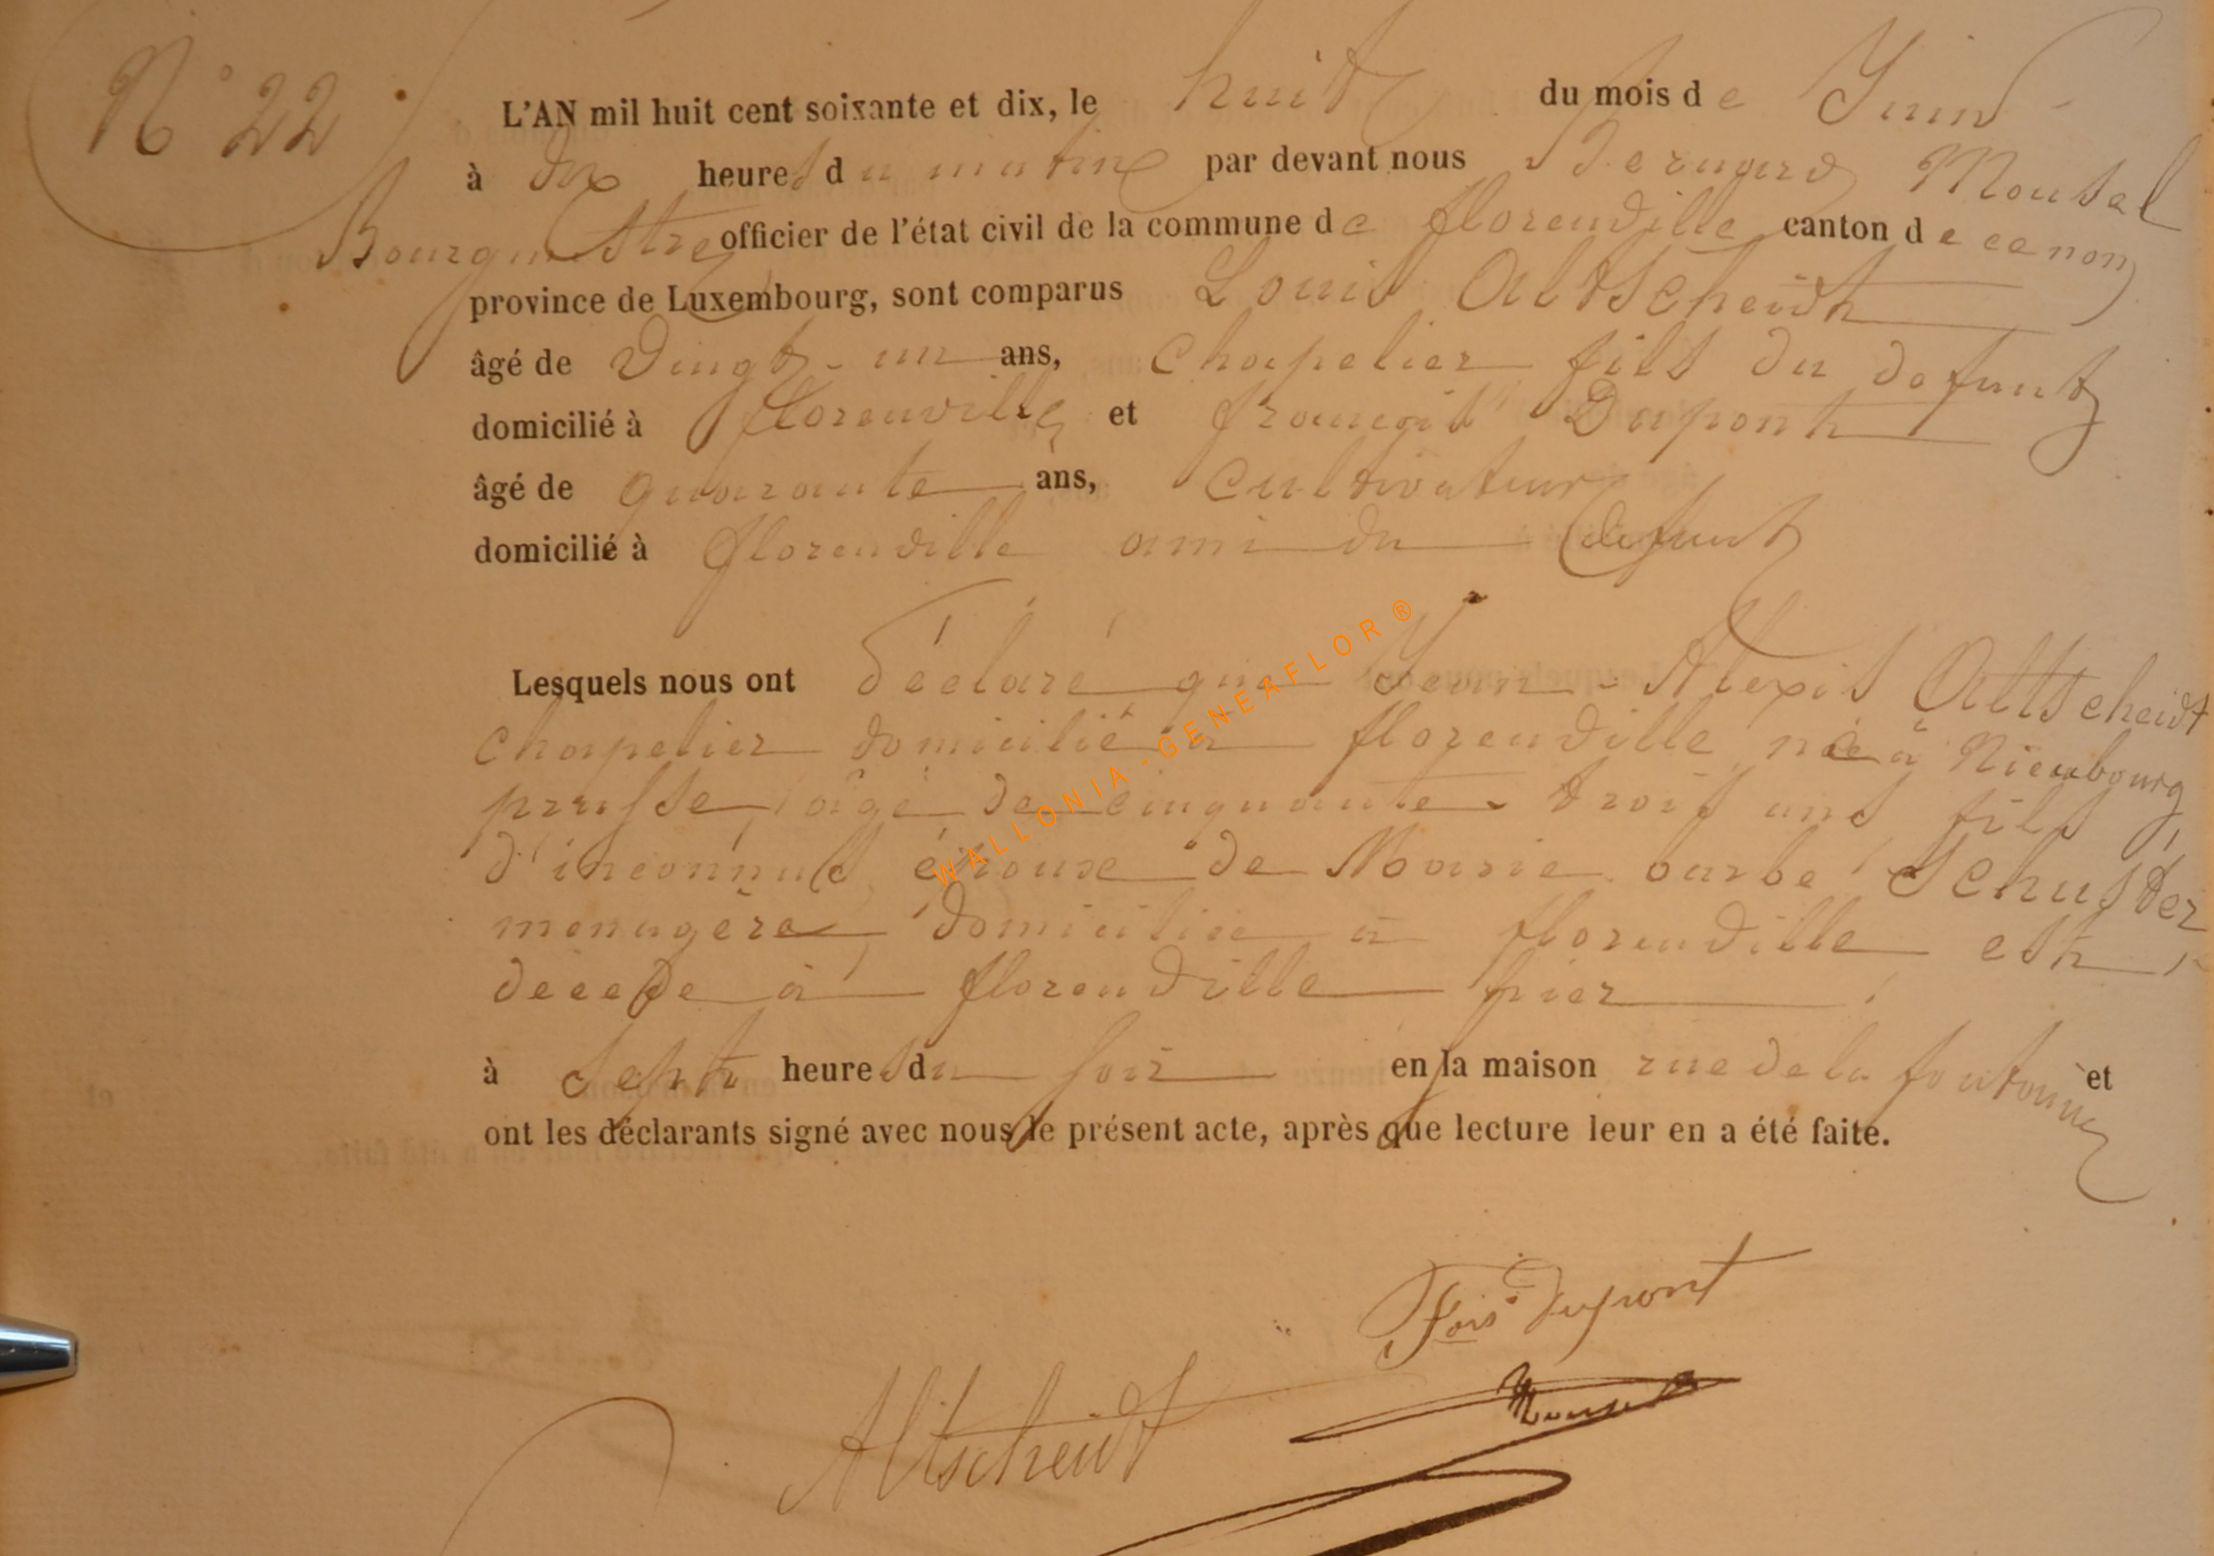 N° 22
L'AN mil huit cent soixante et dix, le huit du mois de Juin
à dix heures du matin par devant nous Bernard Mousel
Bourgmestre officier de l'état civil de la commune de florenville canton de ce nom
province de Luxembourg, sont comparus Louis Altscheidt
âgé de vingt-un ans, chapelier fils du defunt
domicilié à florenville et françois Dupont
âgé de quarante ans, cultivateur
domicilié à florenville ami du defunt
Lesquels nous ont déclaré que Jean-Alexis Altscheidt
chapelier domicilié à florenville né à Nieubourg
prusse, âgé de cinquante-trois ans, fils
d'inconnus, époux de Marie barbe Schuster
menagère, domiciliée à florenville est
décédé à florenville hier
à sept heures du soir en la maison rue de la fontaine et
ont les déclarants signé avec nous le présent acte, après que lecture leur en a été faite.
Fois Dupont
Mousel
Altscheidt
WALLONIA-GENEAFLOR®